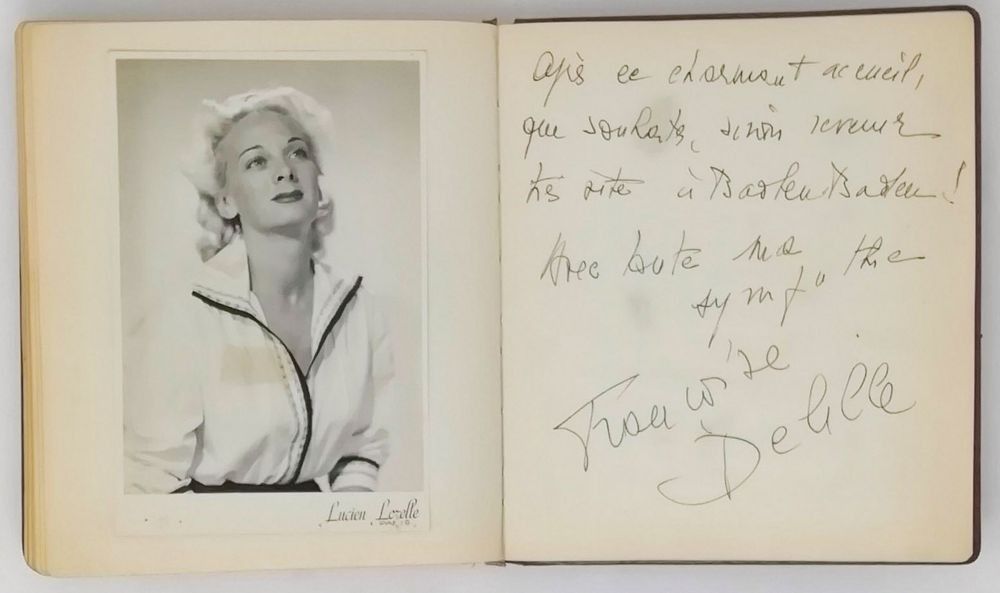 Lucien Lorelle
Après ce charmant accueil,
que souhaiter, sinon revenir
très vite à Baden Baden !
Avec toute ma
sympathie
Françoise
Delille